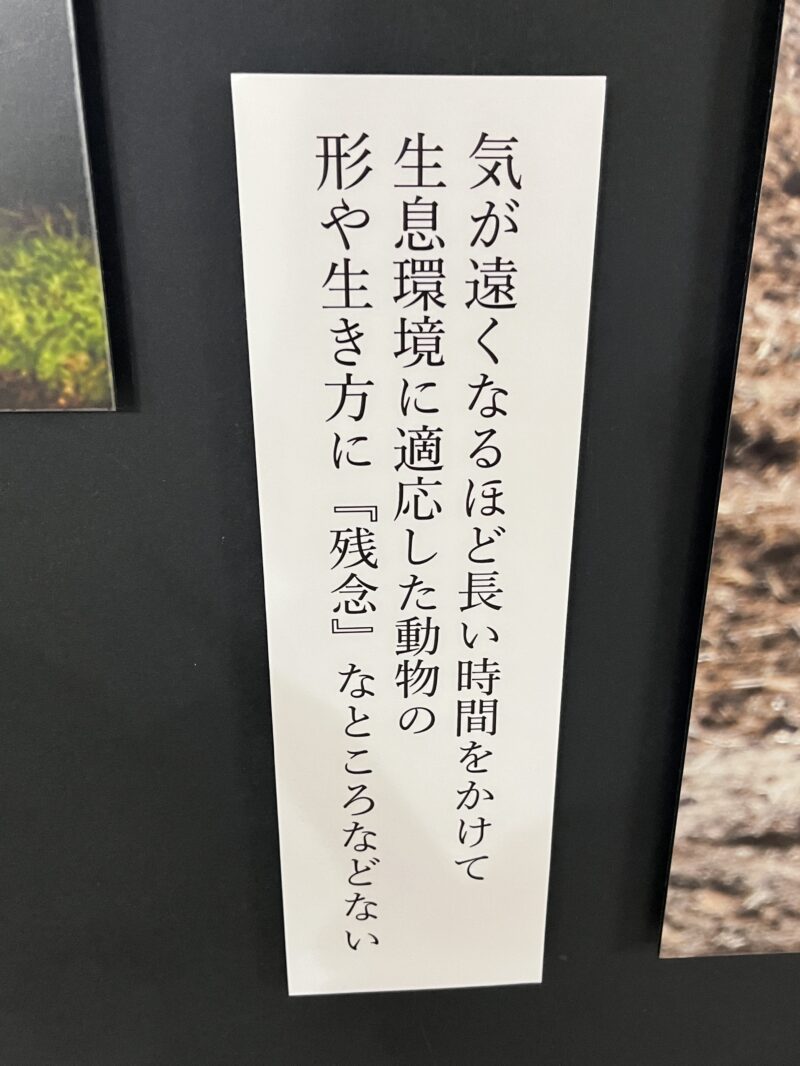 気が遠くなるほど長い時間をかけて
生息環境に適応した動物の
形や生き方に『残念』なところなどない